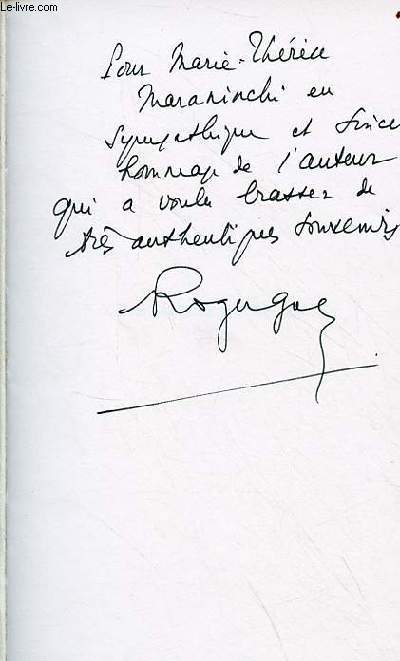 Le-livre.com
Pour Marie-Thérèse
Maraninchi en
sympathique et sincè
hommage de l'auteur
qui a voulu brasser de
très authentiques souvenirs